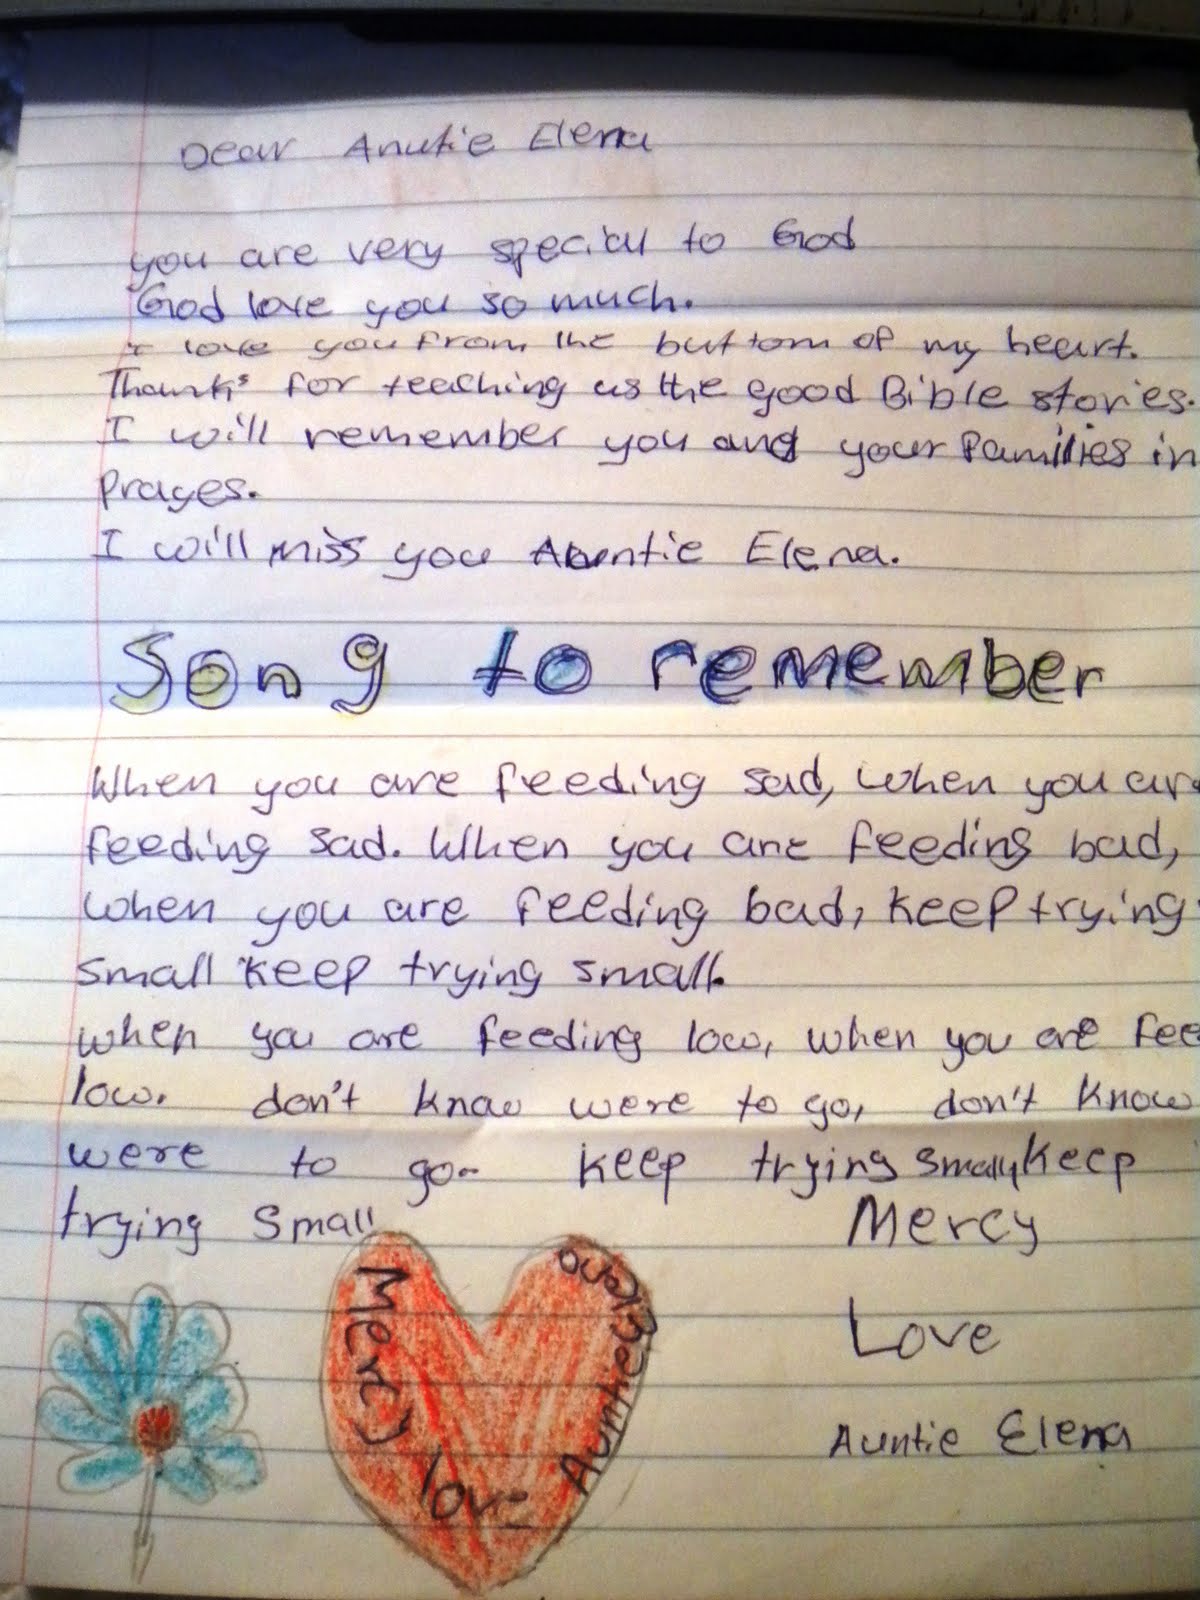 Dear Anutie Elena
you are very special to God
God love you so much.
I love you from the buttom of my heart.
Thanks for teaching us the good Bible stories.
I will remember you and your families in
Prayes.
I will miss you Auntie Elena.
Song to remember
When you are feeding sad, when you are
feeding sad. When you are feeding bad,
when you are feeding bad, keep trying
small keep trying small.
when you are feeding low, when you are fee
low. don't know were to go, don't know
were to go. keep trying small, keep
trying small
Mercy
Love
Auntie Elena
Mercy love Auntie Elena